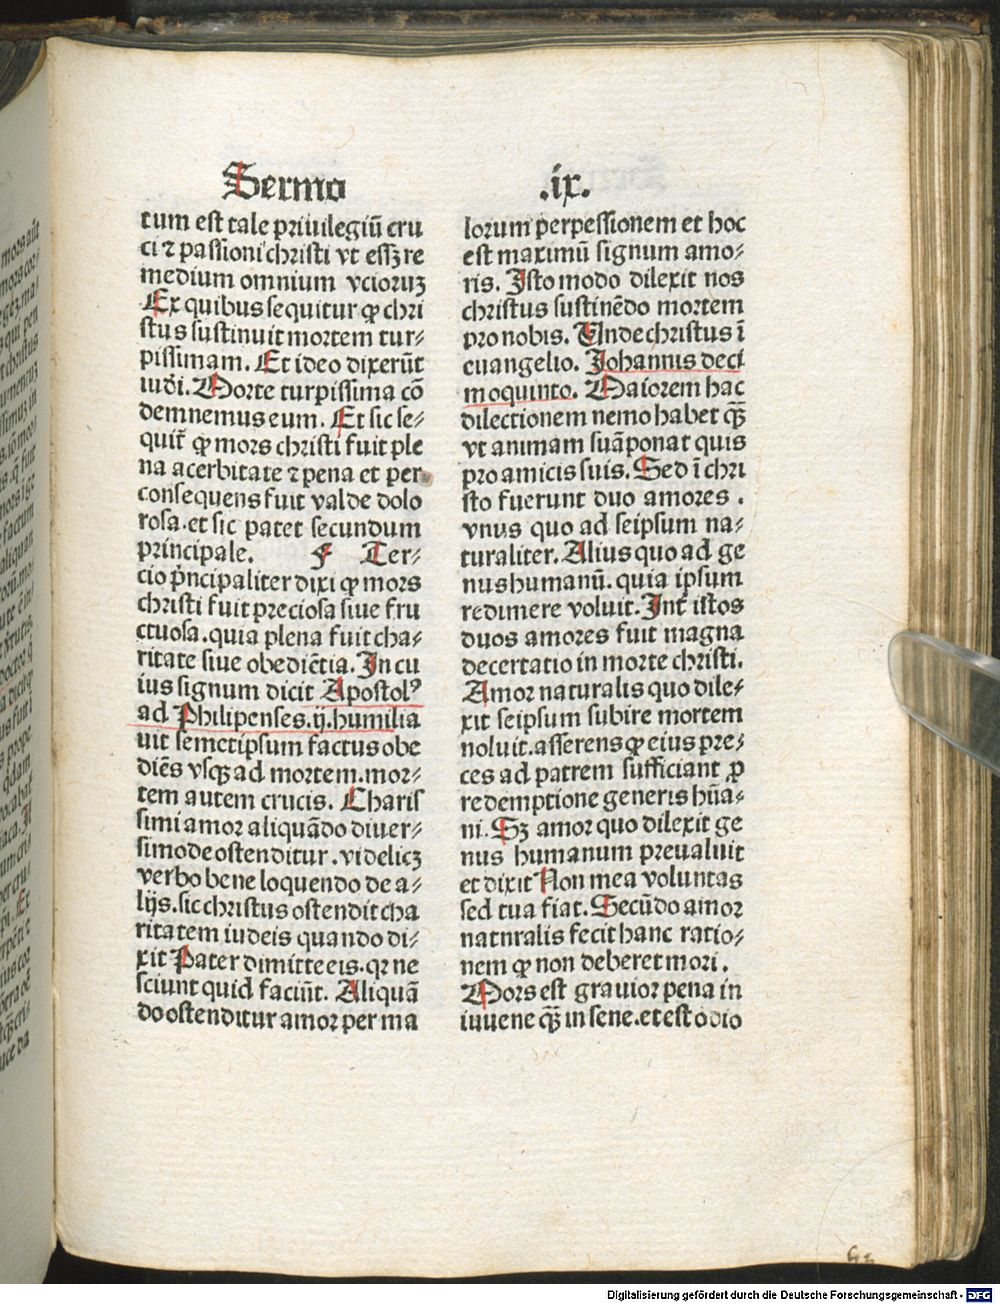 Sermo .ix.
tum est tale priuilegiū cru
ci ⁊ passioni christi vt essꝫ re
medium omnium vcioruꝫ
Ex quibus sequitur ꝙ chri
stus sustinuit mortem tur⸗
pissimam. Et ideo dixerūt
iudi. Morte turpissima cō
demnemus eum. Et sic se⸗
quit̄ ꝙ mors christi fuit ple
na acerbitate ⁊ pena et per
consequens fuit valde dolo
rosa. et sic patet secundum
principale. F Ter⸗
cio p̄ncipaliter dixi ꝙ mors
christi fuit preciosa siue fru
ctuosa. quia plena fuit cha⸗
ritate siue obediētia. In cu
ius signum dicit Apostolꝰ
ad Philipenses. ij. humilia
uit semetipsum factus obe
diēs vsqꝫ ad mortem. mor⸗
tem autem crucis. Charis
simi amor aliquādo diuer⸗
simode ostenditur. videlicꝫ
verbo bene loquendo de a⸗
lijs. sic christus ostendit cha
ritatem iudeis quando di⸗
xit Pater dimitte eis. qꝛ ne
sciunt quid faciūt. Aliquā
do ostenditur amor per ma
lorum perpessionem et hoc
est maximū signum amo⸗
ris. Isto modo dilexit nos
christus sustinēdo mortem
pro nobis. Unde christus ī
euangelio. Johannis deci
moquinto. Maiorem hac
dilectionem nemo habet qꝫ̄
vt animam suā ponat quis
pro amicis suis. Sed ī chri
sto fuerunt duo amores .
vnus quo ad seipsum na⸗
turaliter. Alius quo ad ge
nus humanū. quia ipsum
redimere voluit. Int̄ istos
duos amores fuit magna
decertatio in morte christi.
Amor naturalis quo dile⸗
xit seipsum subire mortem
noluit. asserens ꝙ eius pre⸗
ces ad patrem sufficiant ꝓ
redemptione generis hūa⸗
ni. Sꝫ amor quo dilexit ge
nus humanum preualuit
et dixit Non mea voluntas
sed tua fiat. Secūdo amor
natnralis fecit hanc ratio⸗
nem ꝙ non deberet mori .
Mors est grauior pena in
iuuene qꝫ̄ in sene. et est odio
Digitalisierung gefördert durch die Deutsche Forschungsgemeinschaft - DFG